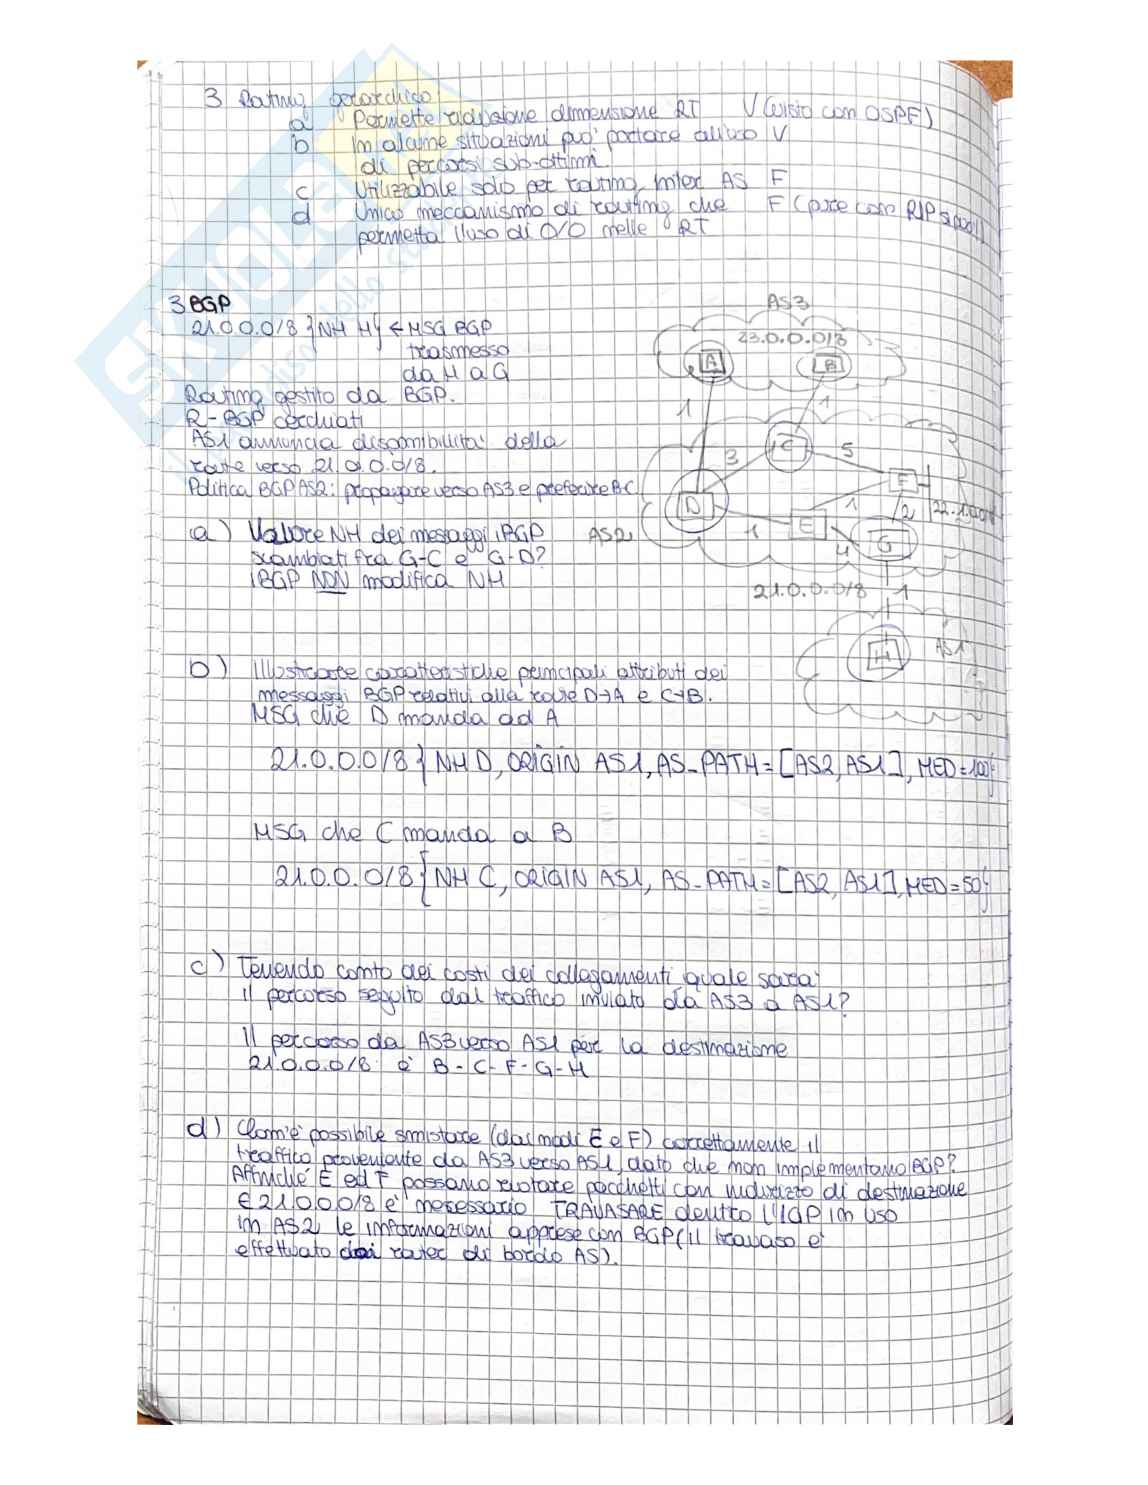 3 Routing gerarchico:
a Permette riduzione dimensione RT V (visto con OSPF)
b In alcune situazioni può portare all'uso V
di percorsi sub-ottimi
c Utilizzabile solo per routing inter AS F
d Unico meccanismo di routing che F (pure con RIP si può)
permetta l'uso di 0/0 nelle RT
3 BGP
21.0.0.0/8 {NH H} ← MSG BGP
trasmesso
da H a G
Routing gestito da BGP.
R-BGP cerchiati
AS1 annuncia disponibilità della
route verso 21.0.0.0/8.
Politica BGP AS2: propagare verso AS3 e preferire BC
a) Valore NH dei messaggi iBGP
scambiati fra G-C e G-D?
iBGP NON modifica NH
AS3
23.0.0.0/8
A
B
1
1
C
3
5
F
D
1
1
2
E
G
4
AS2
21.0.0.0/8
1
H
AS1
b) Illustrare caratteristiche principali attributi dei
messaggi BGP relativi alla route D→A e C→B.
MSG che D manda ad A
21.0.0.0/8 { NH D, ORIGIN AS1, AS_PATH = [AS2, AS1], MED = 100}
MSG che C manda a B
21.0.0.0/8 { NH C, ORIGIN AS1, AS_PATH = [AS2, AS1], MED = 50}
c) Tenendo conto dei costi dei collegamenti quale sarà
il percorso seguito dal traffico inviato da AS3 a AS1?
Il percorso da AS3 verso AS1 per la destinazione
21.0.0.0/8 è B-C-F-G-H
d) Com'è possibile smistare (dai nodi E e F) correttamente il
traffico proveniente da AS3 verso AS1, dato che non implementano BGP?
Affinché E ed F possano ruotare pacchetti con indirizzo di destinazione
∈ 21.0.0.0/8 è necessario TRAVASARE dentro l'IGP in uso
in AS2 le informazioni apprese con BGP (il travaso è
effettuato dai router di bordo AS).